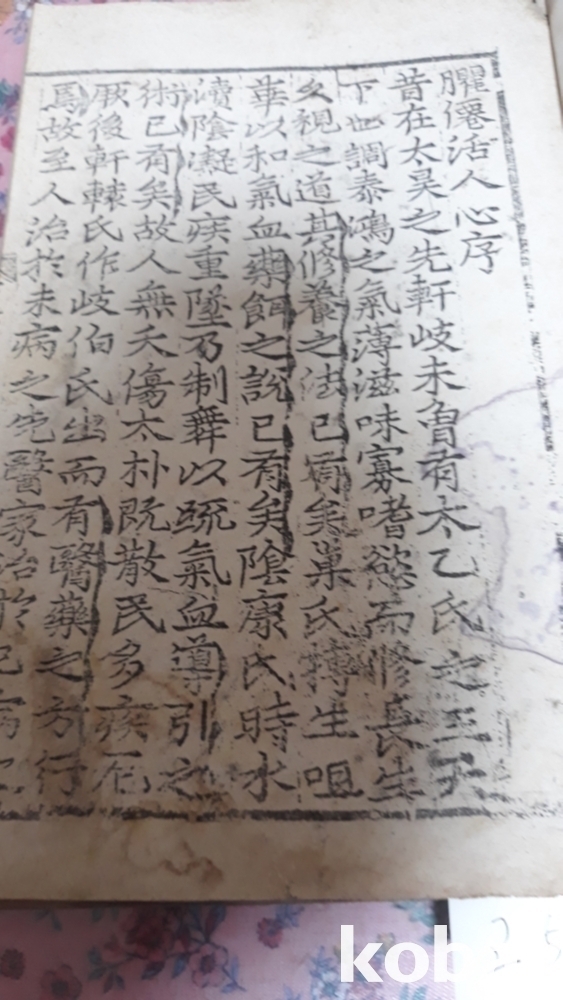 臞僊活人心序
昔在太昊之先軒岐未曾有太乙氏之王天
下也調泰鴻之氣薄滋味寡嗜慾而修長生
久視之道其修養之法已有矣巢氏摶生咀
華以和氣血藥餌之說已有矣陰康氏時水
瀆陰凝民疾重墜乃制舞以疏氣血導引之
術已有矣故人無夭傷太朴旣散民多疾厄
厥後軒轅氏作岐伯氏出而有醫藥之方行
焉故至人治於未病之先醫家治於已病之
kob
2.